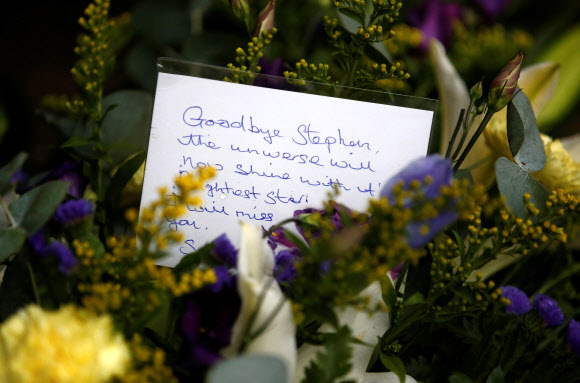 Goodbye Stephen,
the universe will
now shine with it's
brightest star.
I will miss
you.
S